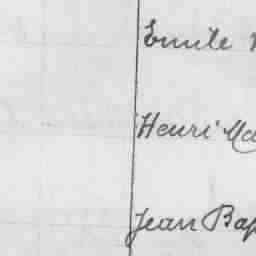 Emile
Henri
Jean